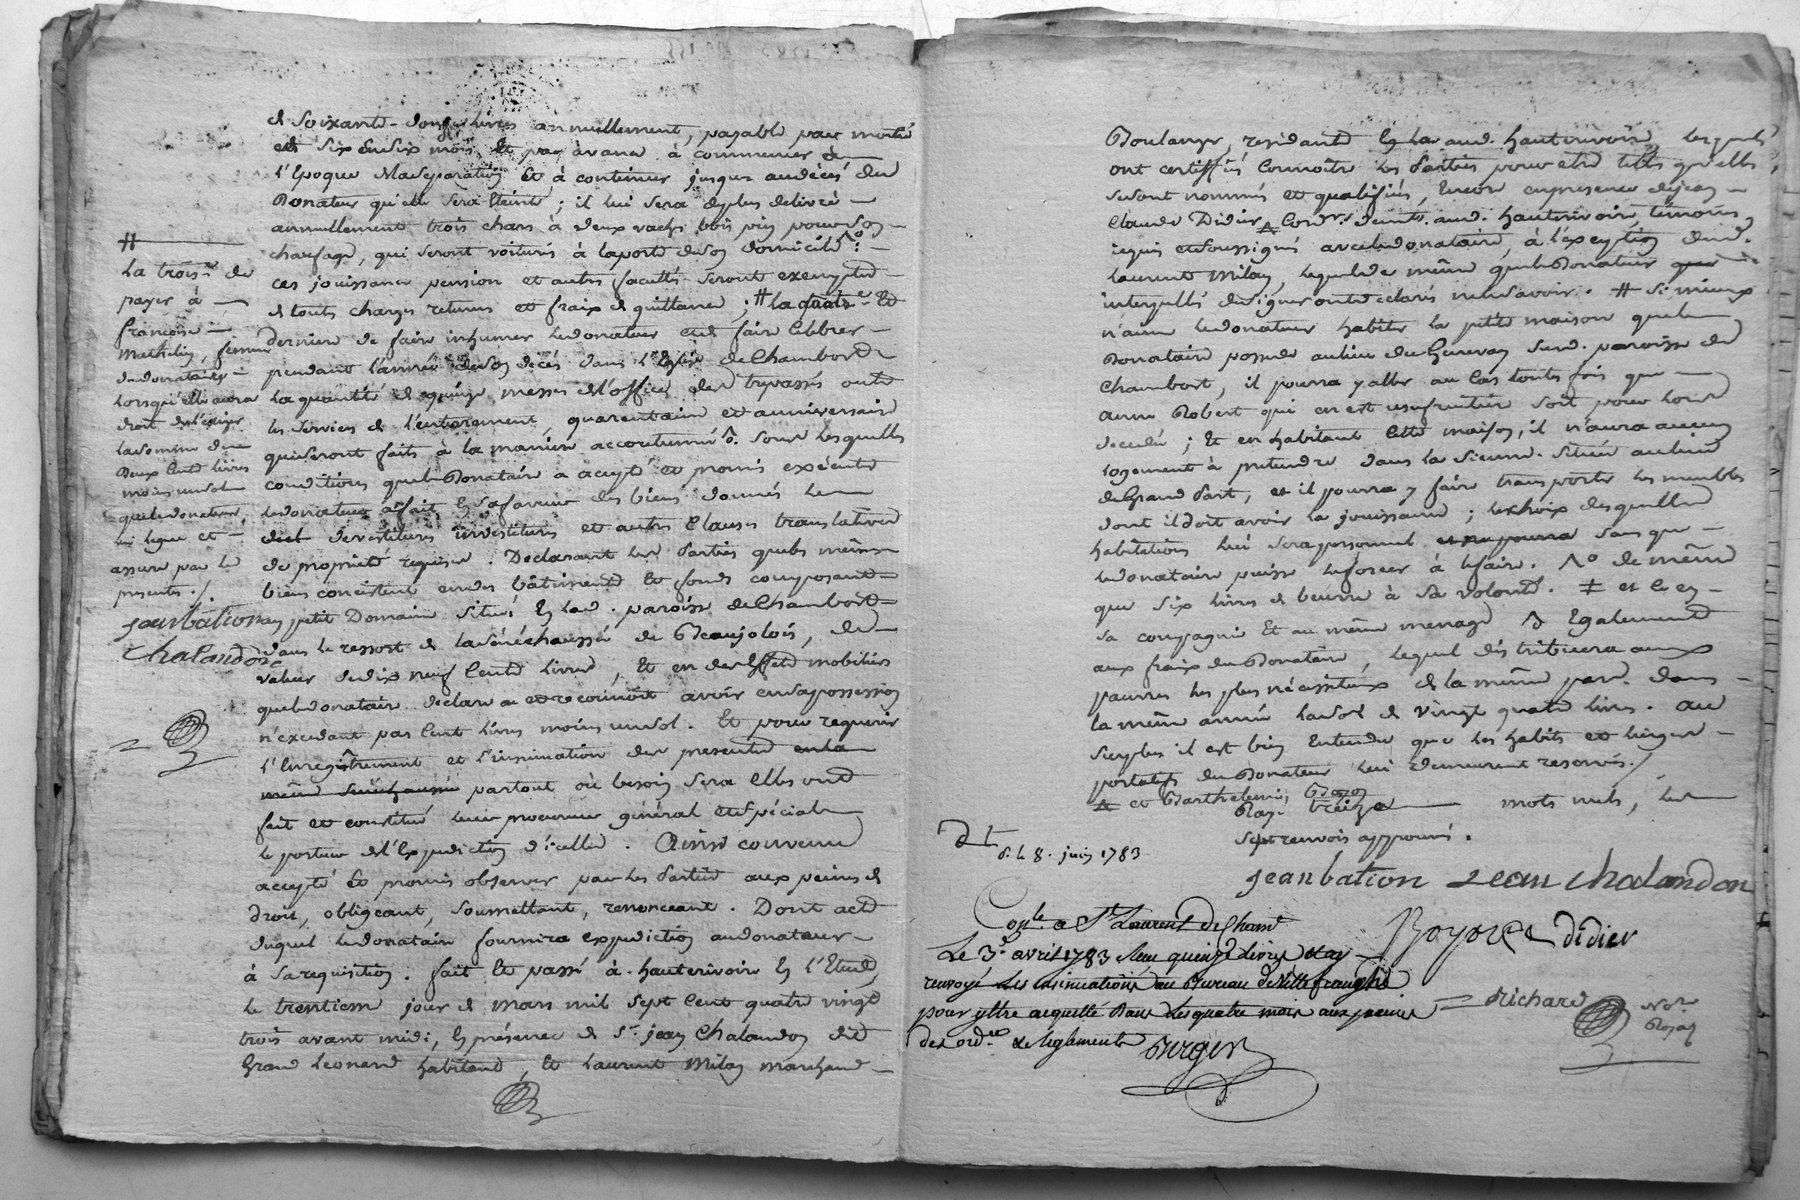 de soixante-douze livres annuellement, payable par moitié
de six en six mois et par avance à commencer à
l'Epoque de la separation et à continuer jusque au décès du
Donateur qu'elle sera Eteinte ; il lui sera deplus delivré
annuellement trois chars à deux vaches bois pin pour son
chaufage, qui seront voiturés à la porte de son domicile ;
ces jouissance pension et autres facultés seront exemptes
de toutes charges retenues et fraix de quittance ; # La quatre. et
derniere de faire inhumer le donateur et de faire celebrer
pendant l'année de son decés dans l'Eglise de Chambost
la quantité de quinze messes de l'office des trepassés outre
les services de l'enterrement, quarantaine et anniversaire
qui seront faits à la maniere accoutumée. Sous lesquelles
conditions que le Donataire a accepté et promis exécuter
le donateur a fait En sa faveur des biens donnés les
devestitures investitures et autres Clauses translatives
de propriété requises. Declarant les Parties que les mêmes
biens consistent en des bâtiments et fonds composant
un petit Domaine situé En lad. paroisse de Chambost
dans le ressort de la sénéchaussée de Beaujolois, de
valeur de dix neuf Cents livres, Et en des Effets mobiliers
que le donataire déclare et reconnoit avoir en sa possession
n'excedant pas Cent livres moins un sol. Et pour requerir
l'Enregistrement et l'insinuation des presentes en la
même sénéchaussée partout où besoin sera elles ont
fait et constitué leur procureur général et spécial
le porteur de l'Expedition d'icelles. Ainsi convenu
accepté Et promis observer par les Parties aux peines de
droit, obligeant, soumettant, renonceant. Dont acte
duquel le donataire fournira expedition au donateur
à sa requisition. fait Et passé à hauterivoire En l'Etude,
le trentieme jour de mars mil sept cent quatre vingt
trois avant midi, En présence de Sr. jean Chalandon dud
Grand Leonard habitant, Et Laurent Milan marchand
#
La trois.e de
payer à
françoise
Mathelin, femme
du donataire
lorsqu'elle aura
droit de l'exiger
la somme de
Deux Cents livres
moins un sol
que le donateur
lui legue et
assure par les
presentes ./.
jean bation
Chalandon
Boulanger, residants En lad. hauterivoire, lesquels
ont certiffiés Connoitre les Parties pour etre telles qu'elles
se sont nommés et qualifiés, Encore en presence de jean
Claude Didier ^ Cordrs. demts. aud. hauterivoire, temoins
requis et soussignés avec le donataire, à l'exception dud.
Laurent Milan, lequel de même que le Donateur que
interpellés de signer ont declarés ne le savoir. # Si mieux
n'aime le donateur habiter la petite maison que le
Donataire possede au lieu du Genevay susd. paroisse de
Chambost, il pourra y aller au Cas toutes fois que
anne Robert qui en est usufruitiere soit pour lors
decedée ; Et en habitant Cette maison, il n'aura aucun
logement à pretendre dans la sienne. située au lieu
de Grand Part, et il pourra y faire transporter les meubles
dont il doit avoir la jouissance ; le choix desquelles
habitations lui sera personnel et ne pourra sans que
le donataire puisse le forcer à le faire. No de même
que six livres de beurre à sa volonté. ‡ et le en
sa compagnie Et au même menage § Egalement
aux fraix du Donataire, lequel distribuera aux
pauvres les plus nécessiteux de la même par. dans
la même année la so. de vingt quatre livres. au
surplus il est bien Entendu que les habits et linges
portatifs du Donateur lui demeurent reservés ./
^ et Barthelemi Bayon
Ray. treize mots nuls, les
sept renvois approuvés.
jean bation Jean chalandon
D. L. 8. juin 1783
Boyon Didier
Conlé a St Laurent De Cham.t
Le 3e avril 1783 Reçu quinze Livres et ay
renvoyé Les insinuations au Bureau de Villefranche
pour y être acquitté Dans Les quatre mois aux peines
des ord.ces et Reglements
Berger
Richard
No.re
Royal